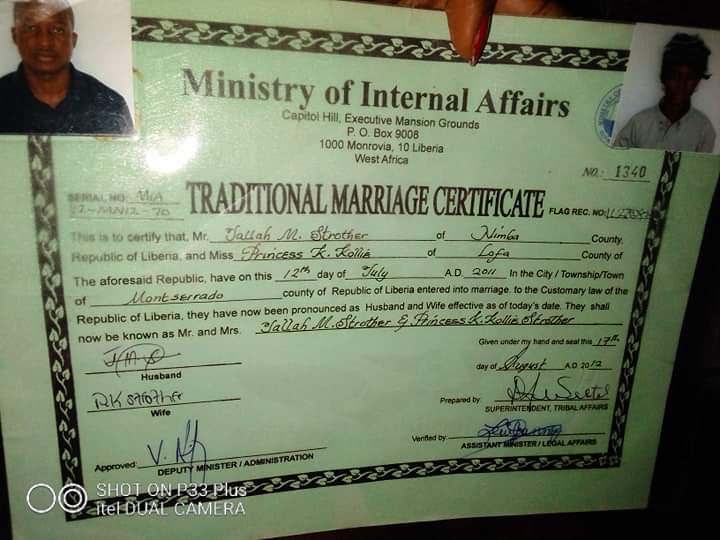 Ministry of Internal Affairs
Capitol Hill, Executive Mansion Grounds
P. O. Box 9008
1000 Monrovia, 10 Liberia
West Africa
NO.- 1340
SERIAL NO. MIA
TRADITIONAL MARRIAGE CERTIFICATE FLAG REC. NO.
This is to certify that, Mr. Tallah M. Strother of Nimba County,
Republic of Liberia, and Miss Princess K. Kollie of Lofa County of
The aforesaid Republic, have on this 12th day of July A.D. 2011 In the City / Township/Town
of Montserrado county of Republic of Liberia entered into marriage, to the Customary law of the
Republic of Liberia, they have now been pronounced as Husband and Wife effective as of today's date. They shall
now be known as Mr. and Mrs. Tallah M. Strother & Princess K. Kollie Strother
Given under my hand and seal this 17th
day of August A.D. 2012
Husband
Wife
Prepared by:
SUPERINTENDENT, TRIBAL AFFAIRS
Verified by:
ASSISTANT MINISTER / LEGAL AFFAIRS
Approved:
DEPUTY MINISTER / ADMINISTRATION
SHOT ON P33 Plus
itel DUAL CAMERA